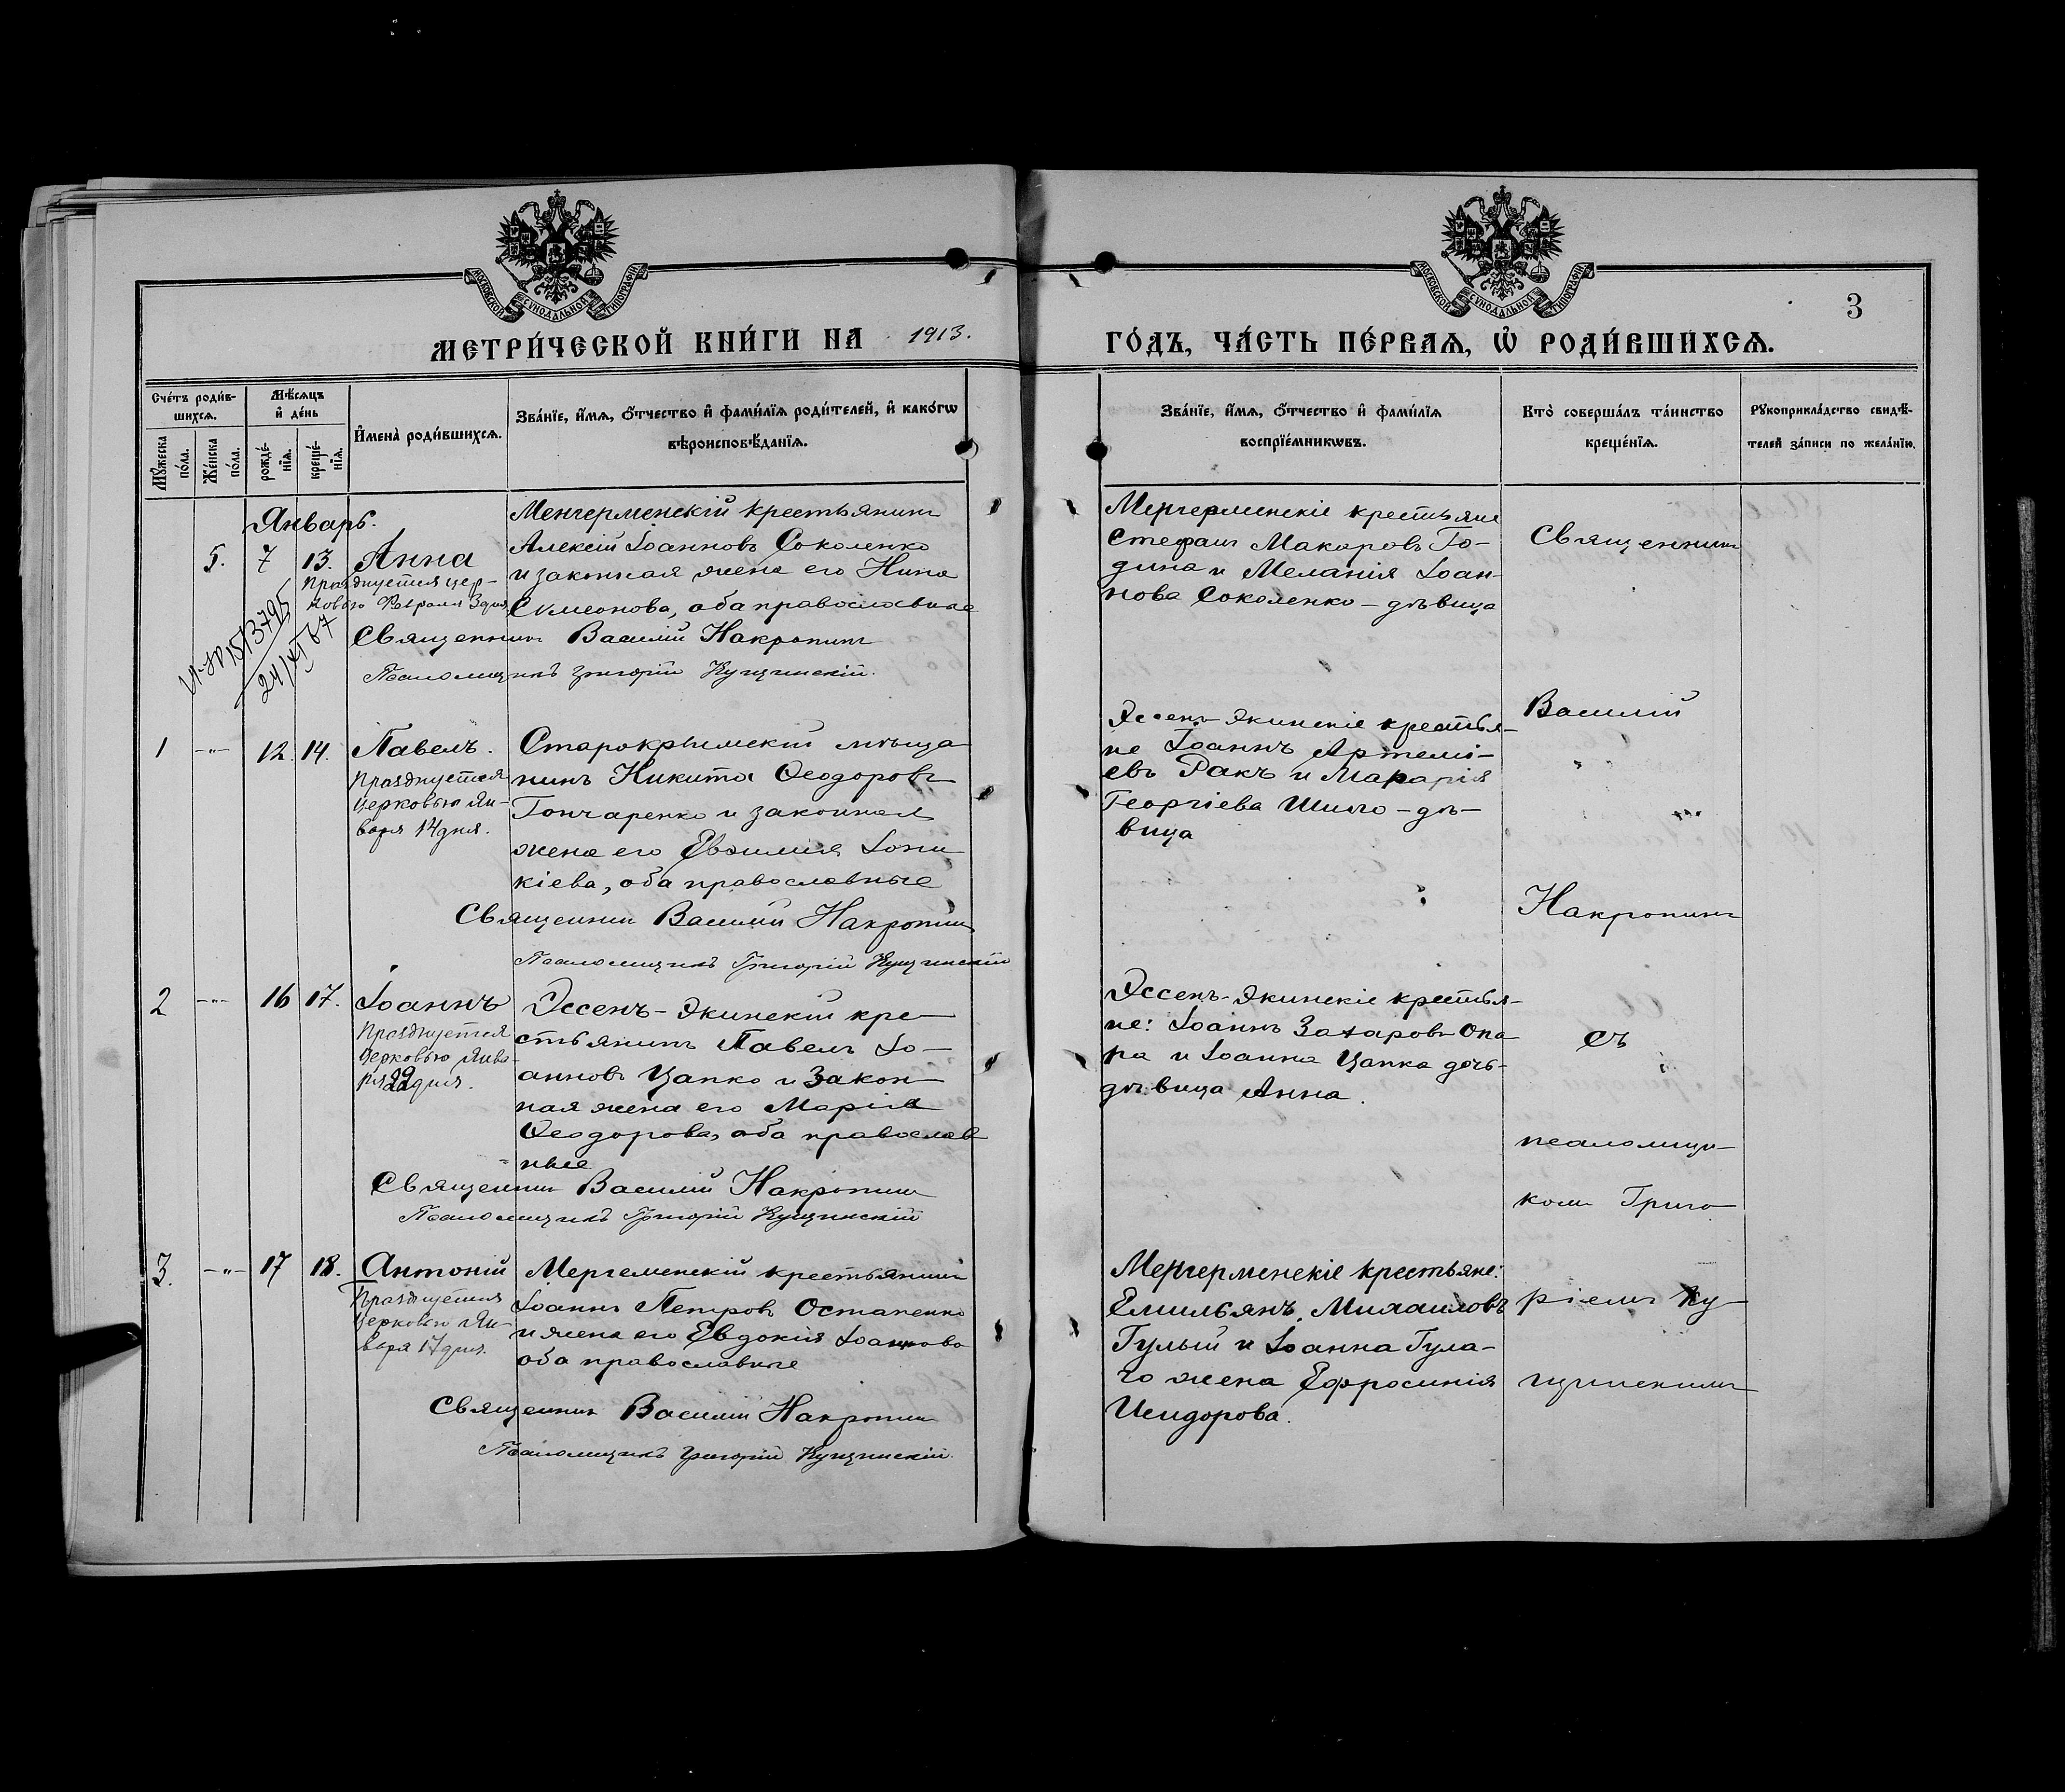 МОСКОВСКОЙ СѴНОДАЛЬНОЙ ТИПОГРАФІИ
МОСКОВСКОЙ СѴНОДАЛЬНОЙ ТИПОГРАФІИ
3
МЕТРИ́ЧЕСКОЙ КНИ́ГИ НА 1913. ГО́ДЪ, ЧА́СТЬ ПЕ́РВАЯ, Ѡ РОДИ́ВШИХСѦ.
Сче́тъ роди́в-
шихсѧ.
Мꙋ́жеска по́ла.
Же́нска по́ла.
Мѣ́сяцъ
и де́нь
рожде́-
нїѧ.
креще́-
нїѧ.
Имена̀ роди́вшихсѧ.
Зва́нїе, и́мѧ, ѻ́тчество и фами́лїѧ роди́телей, и како́гѡ
вѣроисповѣ́данїѧ.
Зва́нїе, и́мѧ, ѻ́тчество и фами́лїѧ
воспрїе́мникѡвъ.
Кто̀ соверша́лъ та́инство
креще́нїѧ.
Рꙋкоприкла́дство свидѣ́-
телей за́писи по жела́нїю.
Январь.
5. 7 13. Анна
Празднуется цер-
ковью Февраля 3 дня.
Менгерменскій крестьянинъ
Алексій Іоанновъ Соколенко
и законная жена его Нина
Симеонова, оба православные
Священникъ Василій Накропинъ
Псаломщикъ Григорій Кущинскій.
24/XI 67
Менгерменскіе крестьяне
Стефанъ Макаровъ Го-
дина и Меланія Іоан-
нова Соколенко - дѣвица
1 -"- 12. 14. Павелъ.
Празднуется
Церковью Ян-
варя 14 дня.
Старокрымскій мѣща-
нинъ Никита Ѳеодоровъ
Гончаренко и законная
жена его Евѳимія Іоки
кіева, оба православные
Священникъ Василій Накропинъ
Псаломщикъ Григорій Кущинскій
Эссенъ-Экинскіе крестья-
не Іоаннъ Артемі-
евъ Ракъ и
Георгіева Шило - дѣ-
вица
2 -"- 16 17. Іоаннъ
Празднуется
Церковью Янва-
ря 22 дня.
Эссенъ-Экинскій кре-
стьянинъ Павелъ Іо-
анновъ Цапко и закон-
ная жена его Марія
Ѳеодорова, оба православ
ные
Священникъ Василій Накропинъ
Псаломщикъ Григорій Кущинскій
Эссенъ-Экинскіе крестья-
не: Іоаннъ Захаровъ Опа
ра и Іоанна Цапка дочь-
дѣвица Анна.
3. -"- 17 18. Антоній
Празднуется
Церковью Ян-
варя 17 дня.
Мергеменскій крестьянинъ
Іоаннъ Петровъ Остапенко
и жена его Евдокія Іоаннова
оба православные
Священникъ Василій Накропинъ
Псаломщикъ Григорій Кущинскій.
Менгерменскіе крестьяне:
Емильянъ Михаиловъ
Гулый и Іоанна Гула-
го жена Ефросинія
Исидорова.
Священникъ
Василій
Накропинъ
съ
псаломщи-
комъ Григо
ріемъ Ку-
щинскимъ